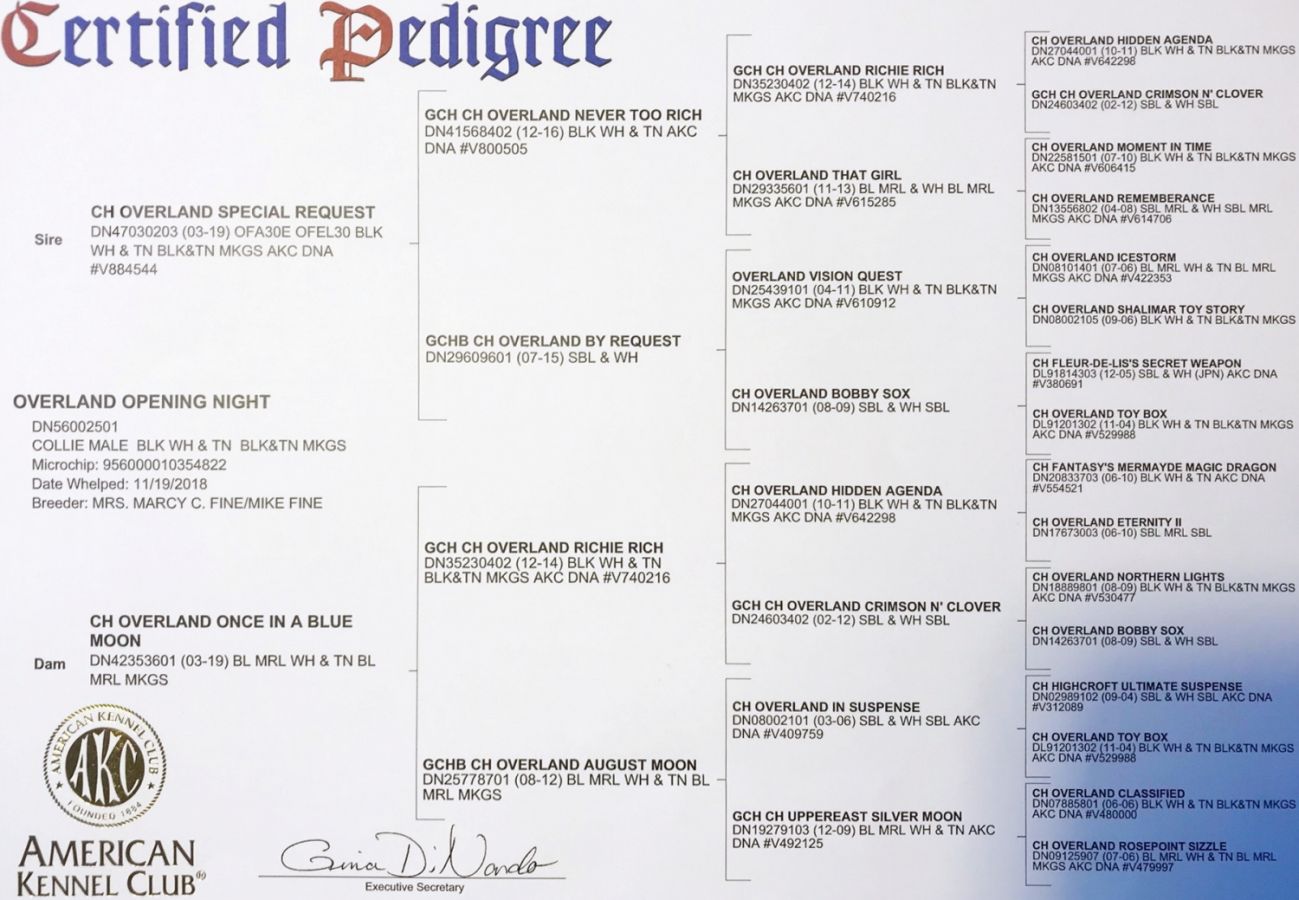 Certified Pedigree
Sire
CH OVERLAND SPECIAL REQUEST
DN47030203 (03-19) OFA30E OFEL30 BLK
WH & TN BLK&TN MKGS AKC DNA
#V884544
OVERLAND OPENING NIGHT
DN56002501
COLLIE MALE BLK WH & TN BLK&TN MKGS
Microchip: 956000010354822
Date Whelped: 11/19/2018
Breeder: MRS. MARCY C. FINE/MIKE FINE
Dam
CH OVERLAND ONCE IN A BLUE
MOON
DN42353601 (03-19) BL MRL WH & TN BL
MRL MKGS
GCH CH OVERLAND NEVER TOO RICH
DN41568402 (12-16) BLK WH & TN AKC
DNA #V800505
GCHB CH OVERLAND BY REQUEST
DN29609601 (07-15) SBL & WH
GCH CH OVERLAND RICHIE RICH
DN35230402 (12-14) BLK WH & TN
BLK&TN MKGS AKC DNA #V740216
GCHB CH OVERLAND AUGUST MOON
DN25778701 (08-12) BL MRL WH & TN BL
MRL MKGS
GCH CH OVERLAND RICHIE RICH
DN35230402 (12-14) BLK WH & TN BLK&TN
MKGS AKC DNA #V740216
CH OVERLAND THAT GIRL
DN29335601 (11-13) BL MRL & WH BL MRL
MKGS AKC DNA #V615285
OVERLAND VISION QUEST
DN25439101 (04-11) BLK WH & TN BLK&TN
MKGS AKC DNA #V610912
CH OVERLAND BOBBY SOX
DN14263701 (08-09) SBL & WH SBL
CH OVERLAND HIDDEN AGENDA
DN27044001 (10-11) BLK WH & TN BLK&TN
MKGS AKC DNA #V642298
GCH CH OVERLAND CRIMSON N' CLOVER
DN24603402 (02-12) SBL & WH SBL
CH OVERLAND IN SUSPENSE
DN08002101 (03-06) SBL & WH SBL AKC
DNA #V409759
GCH CH UPPEREAST SILVER MOON
DN19279103 (12-09) BL MRL WH & TN AKC
DNA #V492125
CH OVERLAND HIDDEN AGENDA
DN27044001 (10-11) BLK WH & TN BLK&TN MKGS
AKC DNA #V642298
GCH CH OVERLAND CRIMSON N' CLOVER
DN24603402 (02-12) SBL & WH SBL
CH OVERLAND MOMENT IN TIME
DN22581501 (07-10) BLK WH & TN BLK&TN MKGS
AKC DNA #V606415
CH OVERLAND REMEMBERANCE
DN13556802 (04-08) SBL MRL & WH SBL MRL
MKGS AKC DNA #V614706
CH OVERLAND ICESTORM
DN08101401 (07-06) BL MRL WH & TN BL MRL
MKGS AKC DNA #V422353
CH OVERLAND SHALIMAR TOY STORY
DN08002105 (09-06) BLK WH & TN BLK&TN MKGS
CH FLEUR-DE-LIS'S SECRET WEAPON
DL91814303 (12-05) SBL & WH (JPN) AKC DNA
#V380691
CH OVERLAND TOY BOX
DL91201302 (11-04) BLK WH & TN BLK&TN MKGS
AKC DNA #V529988
CH FANTASY'S MERMAYDE MAGIC DRAGON
DN20833703 (06-10) BLK WH & TN AKC DNA
#V554521
CH OVERLAND ETERNITY II
DN17673003 (06-10) SBL MRL SBL
CH OVERLAND NORTHERN LIGHTS
DN18889801 (08-09) BLK WH & TN BLK&TN MKGS
AKC DNA #V530477
CH OVERLAND BOBBY SOX
DN14263701 (08-09) SBL & WH SBL
CH HIGHCROFT ULTIMATE SUSPENSE
DN02989102 (09-04) SBL & WH SBL AKC DNA
#V312089
CH OVERLAND TOY BOX
DL91201302 (11-04) BLK WH & TN BLK&TN MKGS
AKC DNA #V529988
CH OVERLAND CLASSIFIED
DN07885801 (06-06) BLK WH & TN BLK&TN MKGS
AKC DNA #V480000
CH OVERLAND ROSEPOINT SIZZLE
DN09125907 (07-06) BL MRL WH & TN BL MRL
MKGS AKC DNA #V479997
AMERICAN KENNEL CLUB
AKC
FOUNDED 1884
AMERICAN
KENNEL CLUB®
Gina DiNardo
Executive Secretary